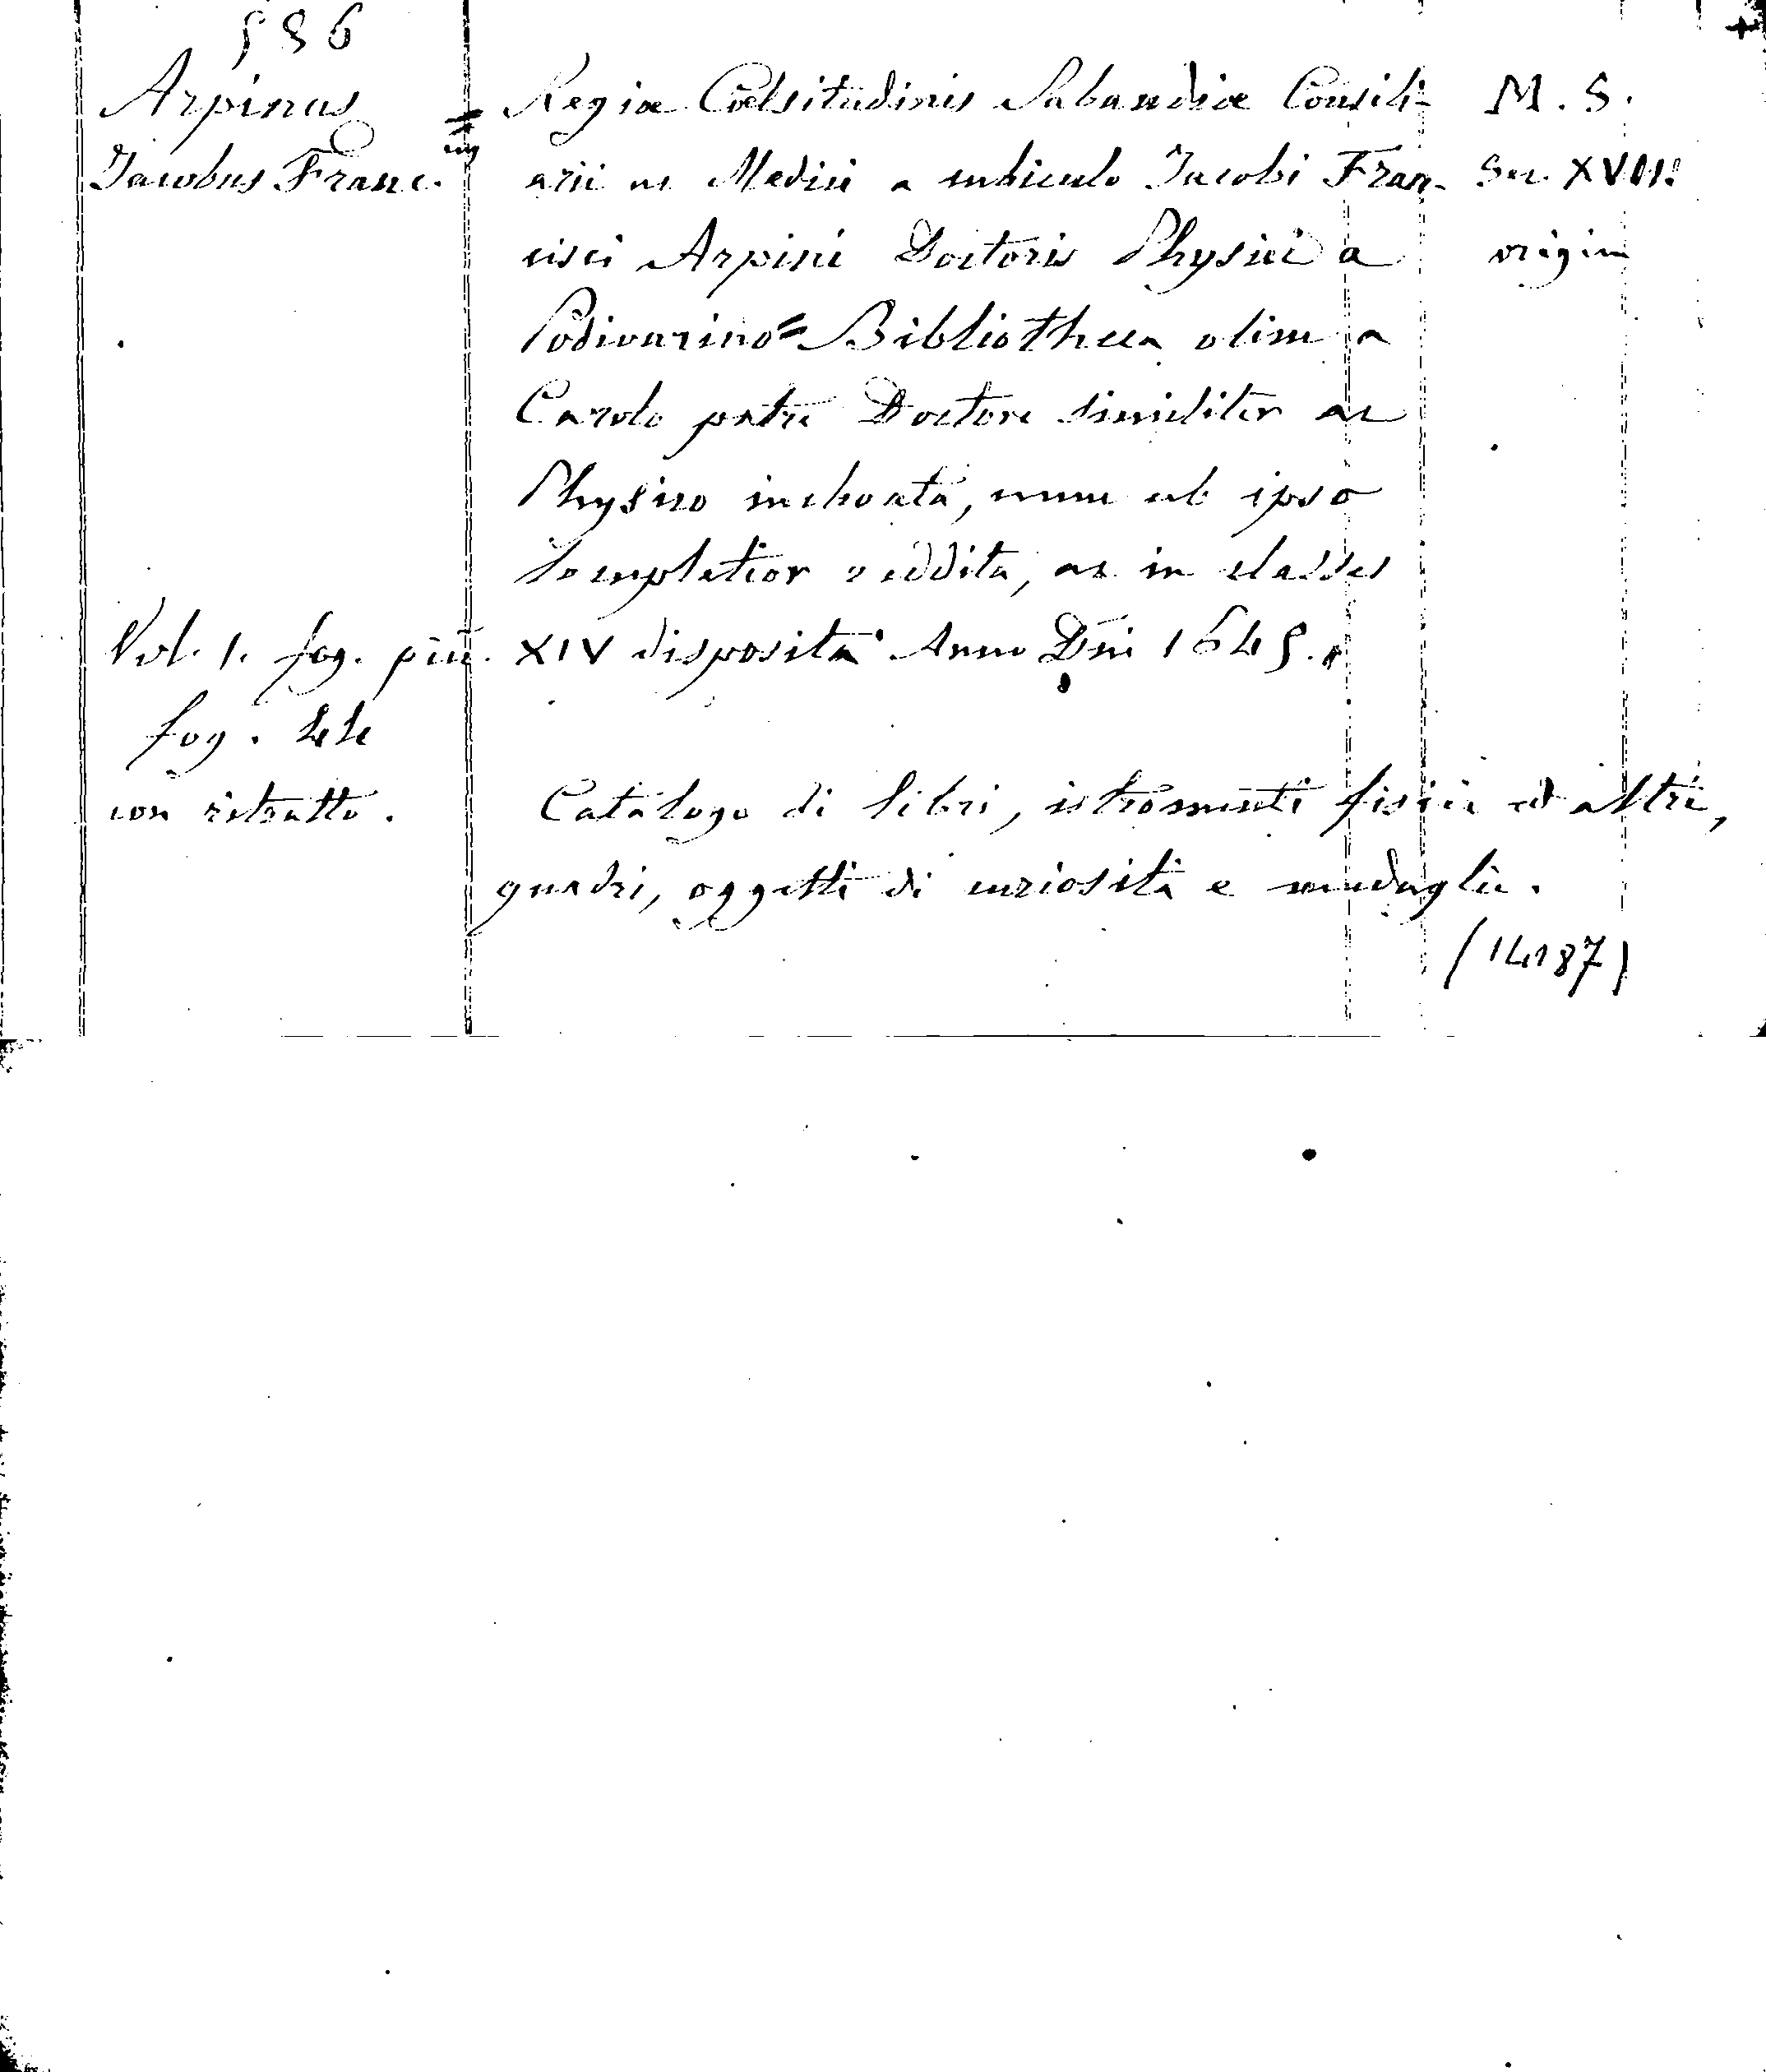 586
Arpinus
Jacobus Franc.
= Regiæ Cœlsitudinis Sabaudiæ Consili-
arii ac Medici a cubiculo Jacobi Fran-
cisci Arpini Doctoris Physici a
Podivarino = Bibliotheca olim a
Carolo patre Doctore similiter ac
Physico inchoata, nunc ab ipso
completior reddita, ac in classes
XIV disposita Anno Dni 1645.
M. S.
Sec. XVII.
origin
Vol. 1. fog. picc.
fog. 44
con ritratto.
Catalogo di libri, istromenti fisici ed altri,
quadri, oggetti di curiosità e medaglie.
(14187)